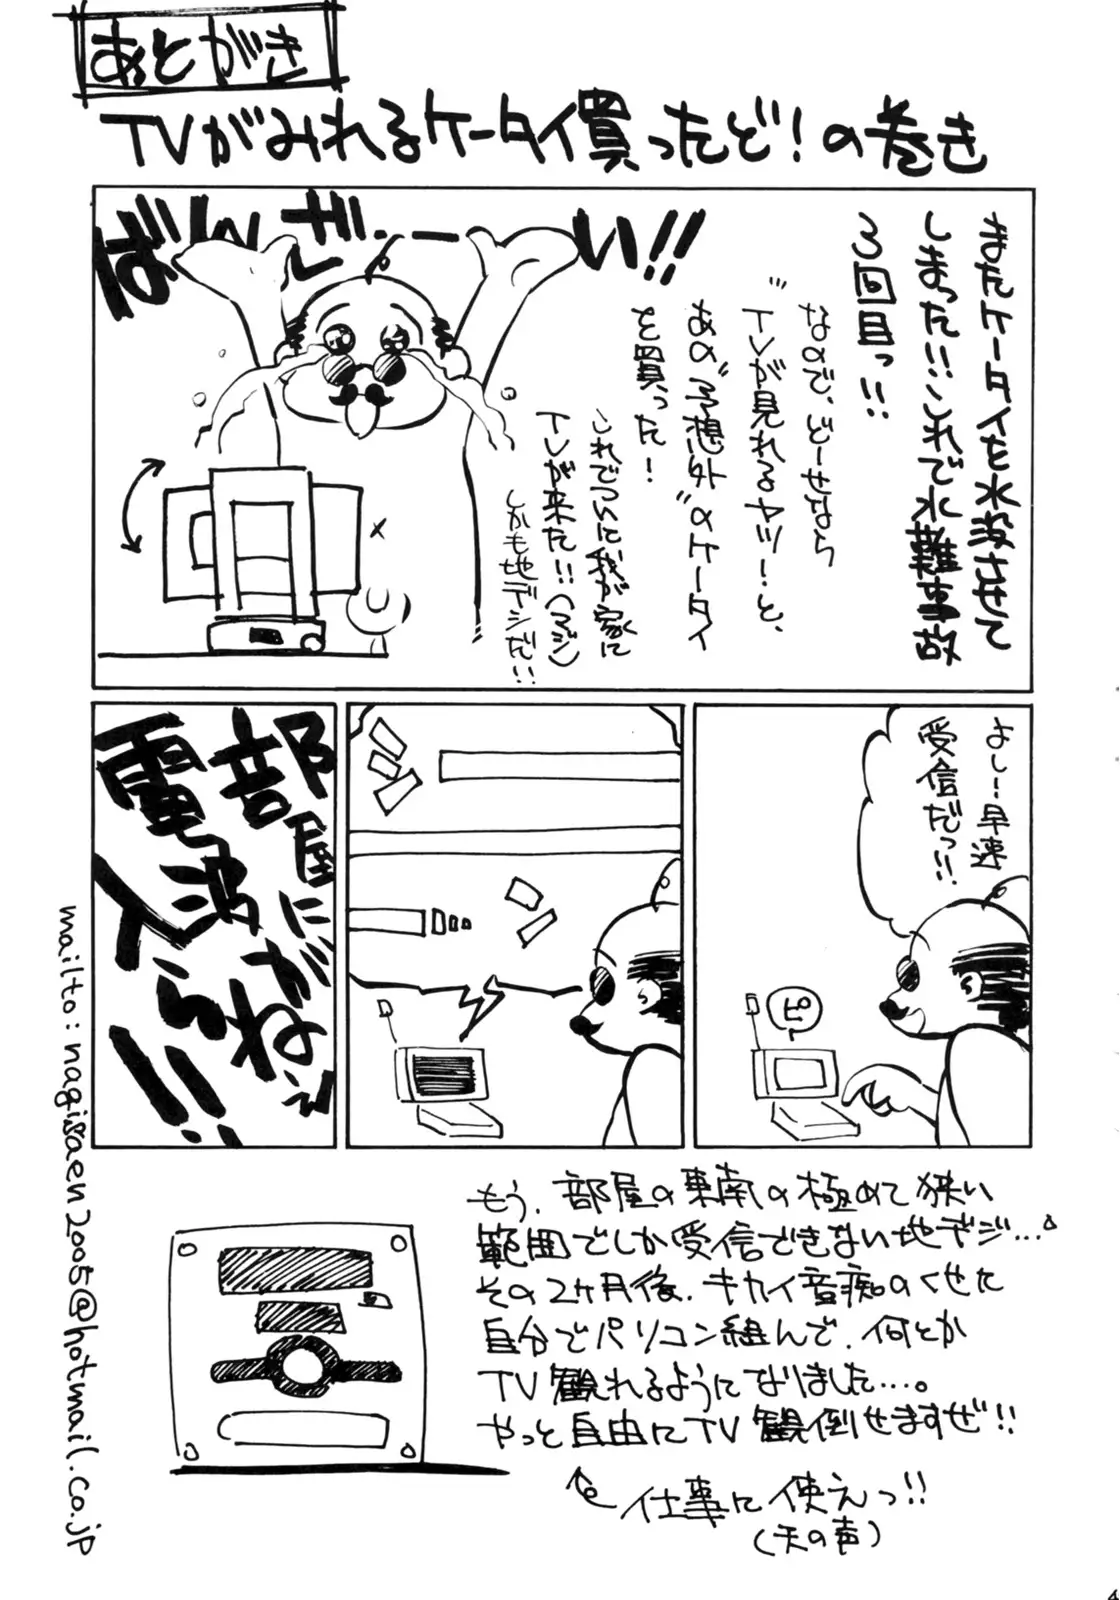 あとがき
TVがみれるケータイ買ったど!の巻き
ばんざーい!!
またケータイを水没させて
しまった!!これで水難事故
3回目っ!!
なので、どーせなら
"TVが見れるヤツ!"と、
あの"予想外"のケータイ
を買った!
これでついに我が家に
TVが来た!!(マジ)
しかも地デジだ!!
よし!早速
受信だっ!!
ピ
部屋に
電波がねぇ
入らん!!
もう、部屋の東南の極めて狭い
範囲でしか受信できない地デジ…。
その2ヶ月後、キカイ音痴のくせた
自分でパソコン組んで、何とか
TV観れるようになりました…。
やっと自由にTV観倒せますぜ!!
仕事に使えっ!!
(天の声)
mailto:nagisaen2005@hotmail.co.jp
4